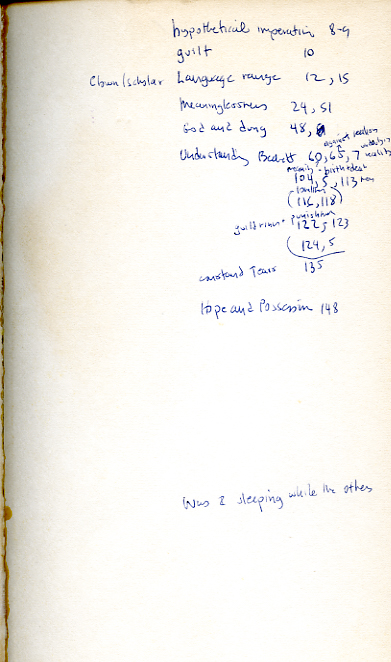 hypothetical imperative 8-9
guilt 10
Clown/scholar Language range 12, 15
Meaninglessness 24, 51
God and dung 48,
against realism
Understanding Beckett 60, 65, 7 reality
birth+death
104, 5, 113
(116, 118)
punishment
122, 123
(124, 5)
constant Tears 135
Hope and Possession 148
Was I sleeping while the others